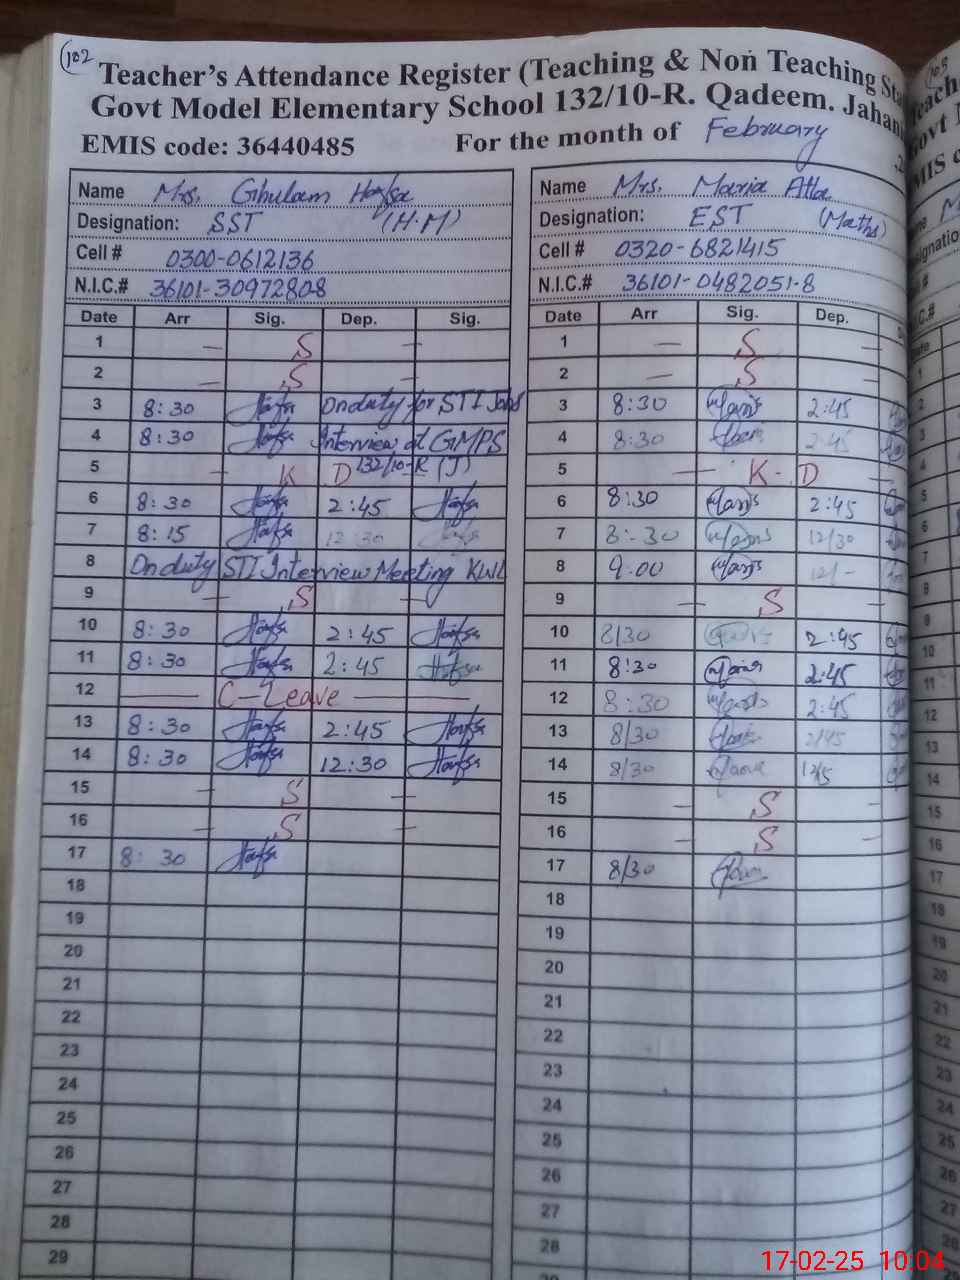 102
Teacher's Attendance Register (Teaching & Non Teaching Sta
Govt Model Elementary School 132/10-R. Qadeem. Jahani
EMIS code: 36440485 For the month of February
Name Mrs. Ghulam Hafsa
Designation: SST (H.M)
Cell # 0300-0612136
N.I.C.# 36101-3097280-8
Date Arr Sig. Dep. Sig.
1 — S —
2 — S —
3 8:30 Hafsa On duty for STI Jobs
4 8:30 Hafsa Interview at GMPS
5 — K D 132/10-R (J)
6 8:30 Hafsa 2:45 Hafsa
7 8:15 Hafsa 12:30 Hafsa
8 On duty STI Interview Meeting KWL
9 — S —
10 8:30 Hafsa 2:45 Hafsa
11 8:30 Hafsa 2:45 Hafsa
12 — C-Leave —
13 8:30 Hafsa 2:45 Hafsa
14 8:30 Hafsa 12:30 Hafsa
15 — S —
16 — S —
17 8:30 Hafsa
18
19
20
21
22
23
24
25
26
27
28
29
Name Mrs. Maria Atta
Designation: EST (Maths)
Cell # 0320-6821415
N.I.C.# 36101-0482051-8
Date Arr Sig. Dep.
1 — S —
2 — S —
3 8:30 2:45
4 8:30 2:45
5 — K-D —
6 8:30 2:45
7 8:30 12/30
8 9:00 12/-
9 — S —
10 8/30 2:45
11 8:30 2:45
12 8:30 2:45
13 8/30 2/45
14 8/30
15 — S —
16 — S —
17 8/30
18
19
20
21
22
23
24
25
26
27
28
17-02-25 10:04